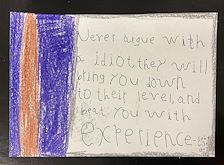 Never argue with
a idiot, they will
bring you down
to their level, and
beat you with
experience